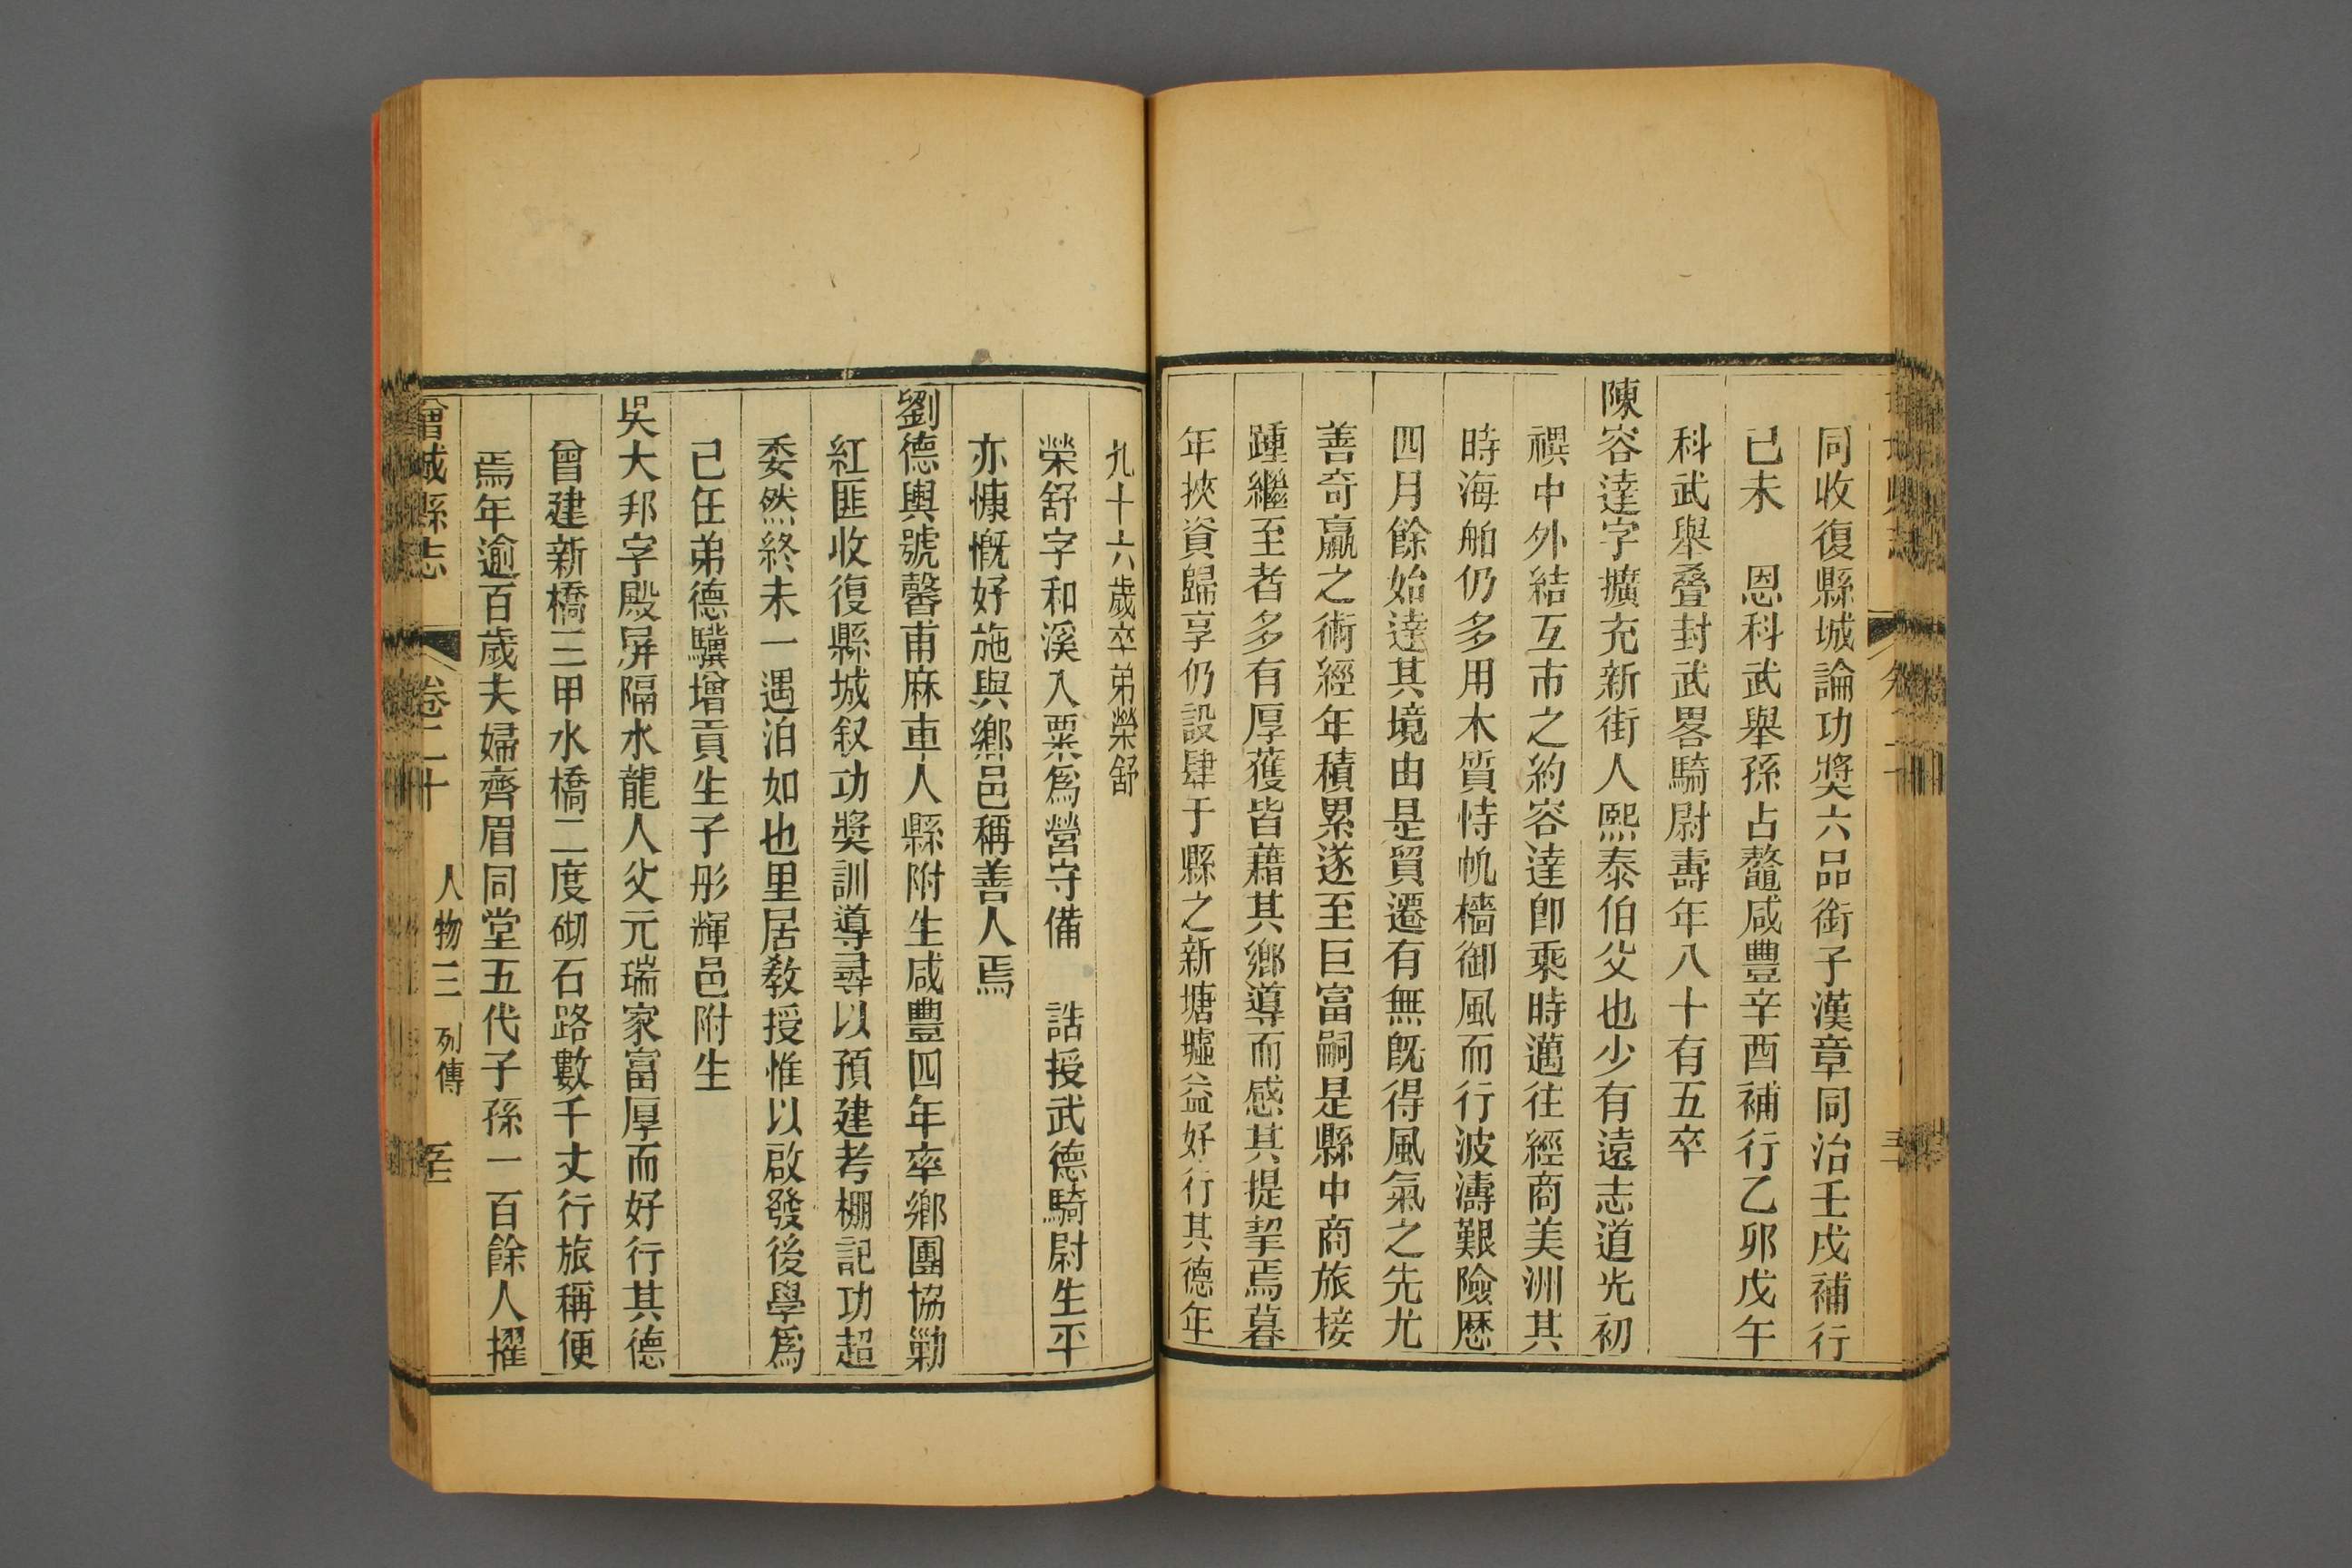 同收復縣城論功獎六品銜子漢章同治壬戌補行
己未　恩科武舉孫占鼇咸豐辛酉補行乙卯戊午
科武舉叠封武畧騎尉壽年八十有五卒
陳容達字擴充新街人熙泰伯父也少有遠志道光初
禩中外結互市之約容達卽乘時邁往經商美洲其
時海舶仍多用木質恃帆檣御風而行波濤艱險歷
四月餘始達其境由是貿遷有無旣得風氣之先尤
善奇贏之術經年積累遂至巨富嗣是縣中商旅接
踵繼至者多有厚獲皆藉其鄉導而感其提挈焉暮
年挾資歸享仍設肆于縣之新塘墟益好行其德年
九十六歲卒弟榮舒
榮舒字和溪入粟爲營守備　誥授武德騎尉生平
亦慷慨好施與鄉邑稱善人焉
劉德輿號馨甫麻車人縣附生咸豐四年率鄉團協勦
紅匪收復縣城叙功獎訓導尋以預建考棚記功超
委然終未一遇泊如也里居教授惟以啟發後學爲
己任弟德驥增貢生子彤輝邑附生
吳大邦字殿屏隔水龍人父元瑞家富厚而好行其德
曾建新橋三甲水橋二度砌石路數千丈行旅稱便
焉年逾百歲夫婦齊眉同堂五代子孫一百餘人擢
增城縣志　卷二十　人物三　列傳